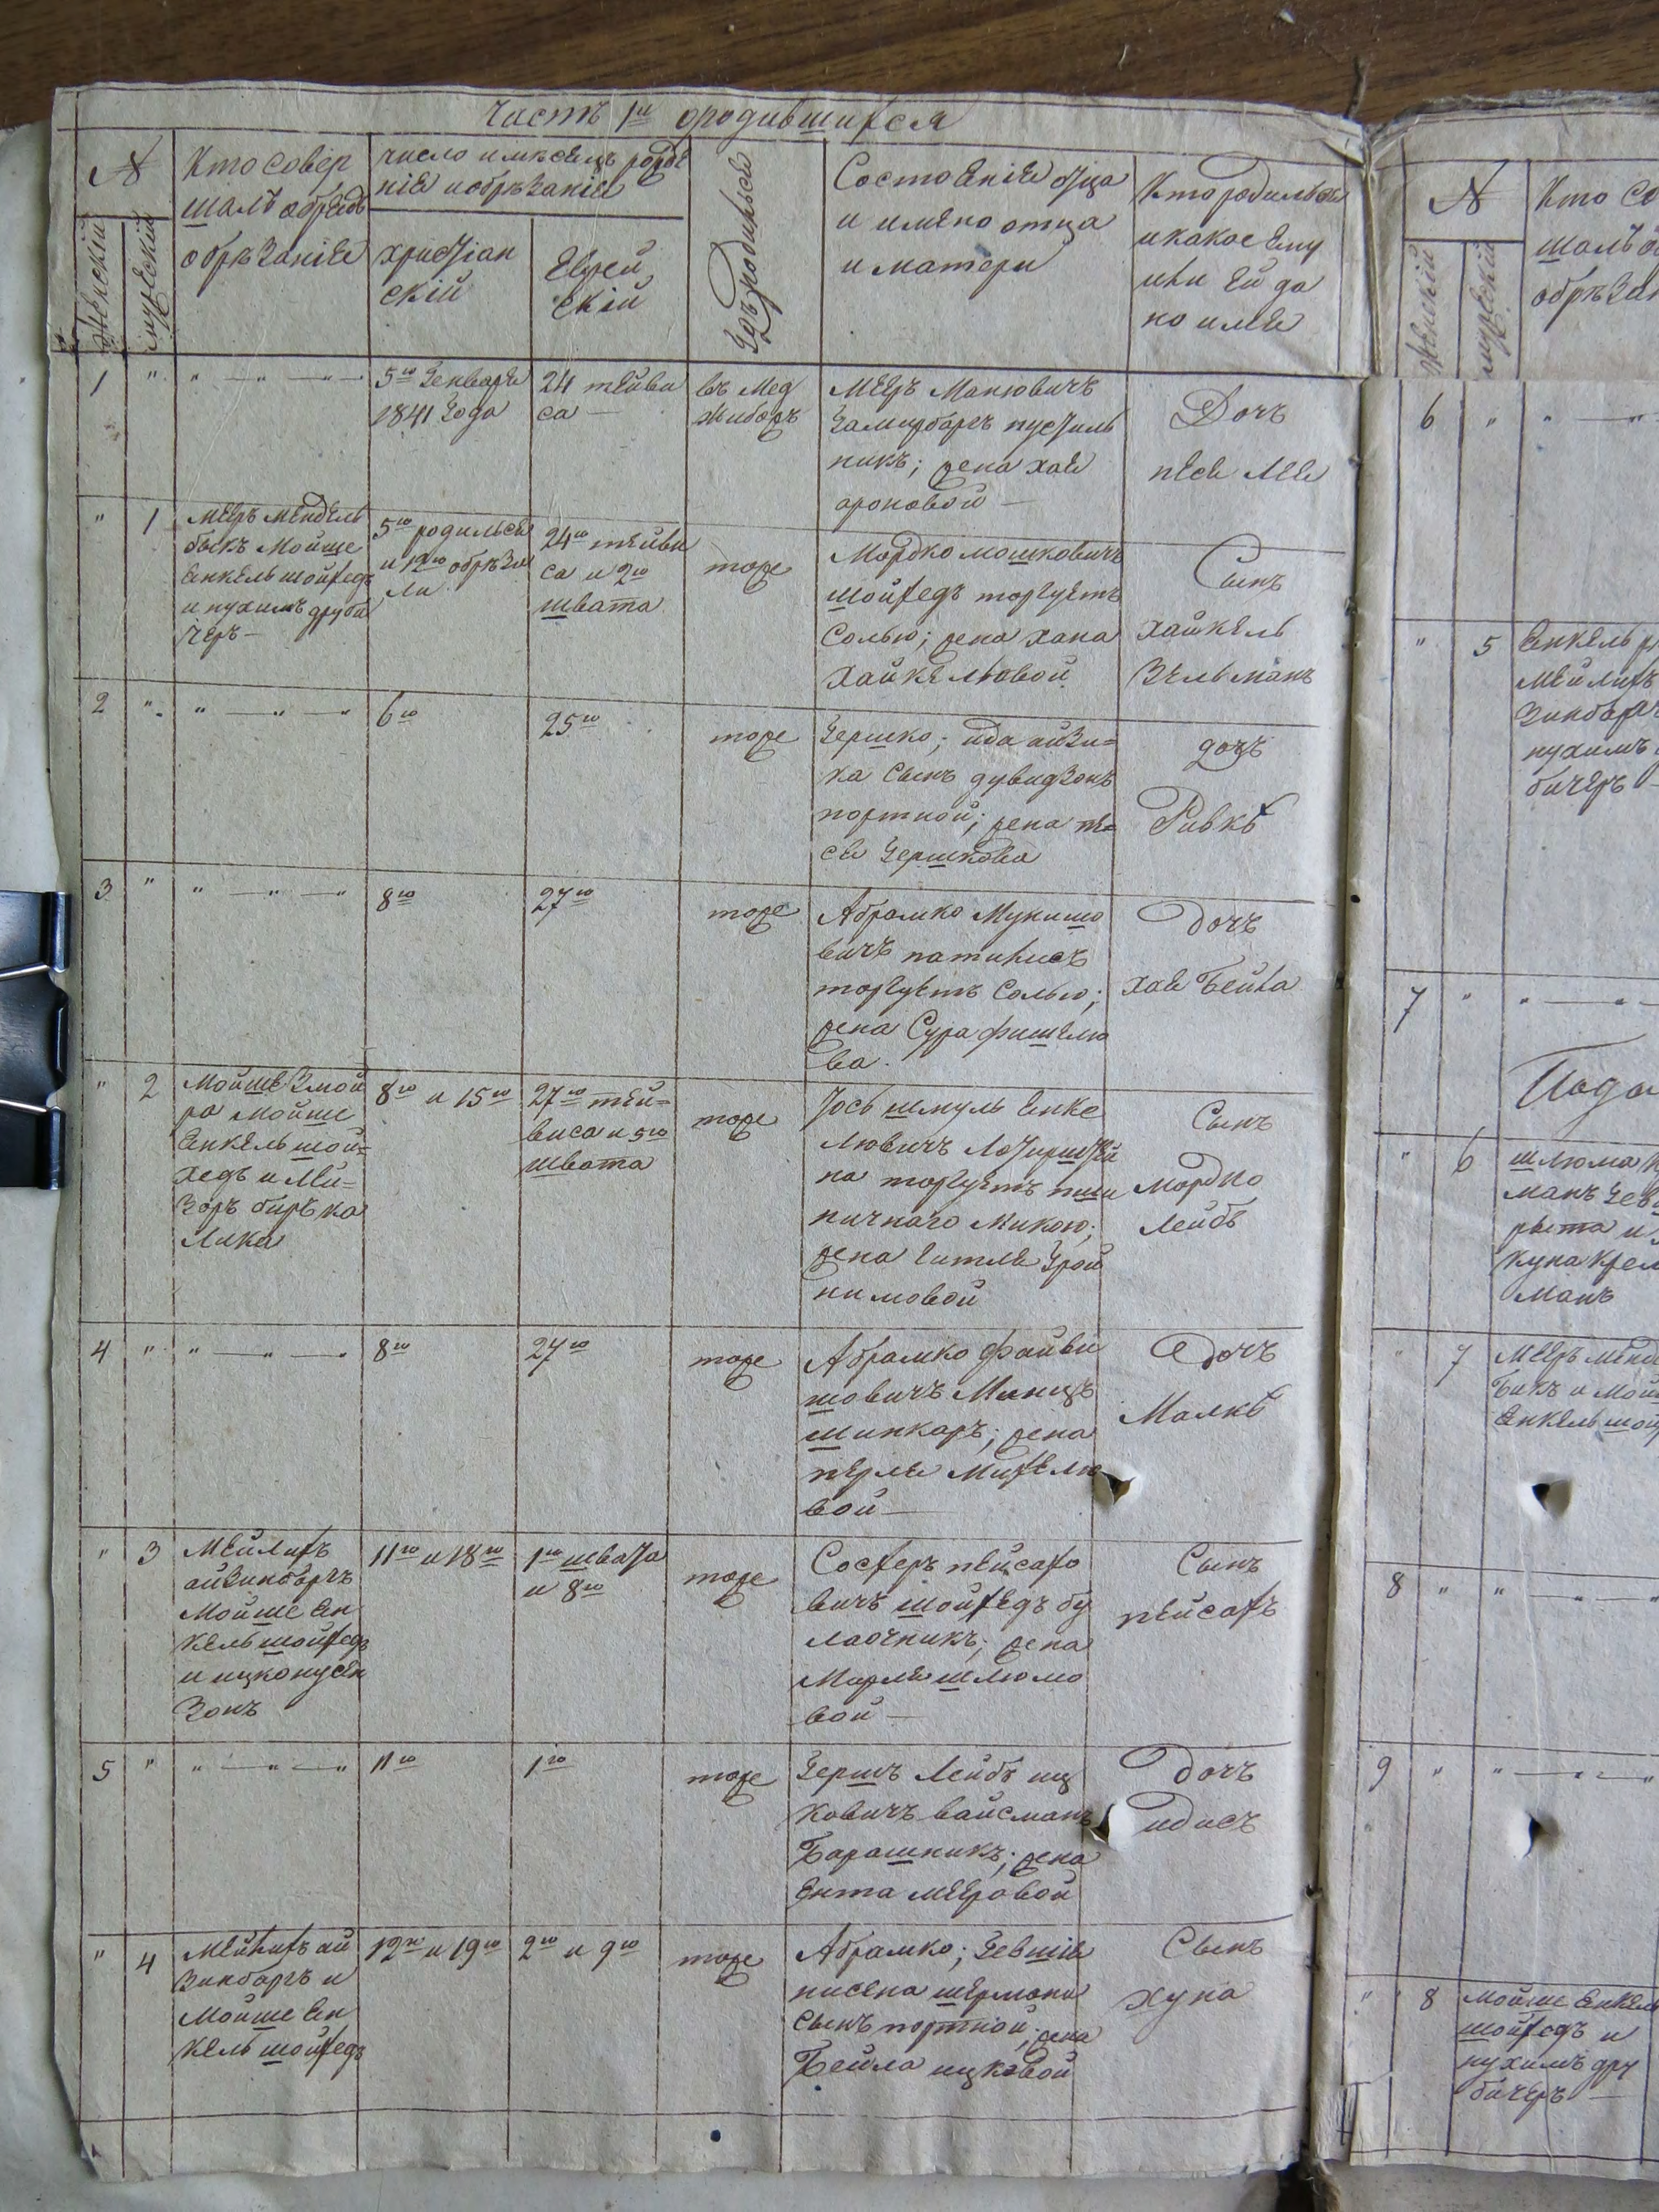 Часть 1я ородившихся
№
Кто совер
шалъ обрядъ
обрѣзаніе
число имѣсецъ рожде
ніе иобрѣзаніе
Женскій
мужескій
христіан
скій
Еврей
скій
Гдѣ родильсе
Состоеніе отца
и имено отца
и матери
Кто родильсе
икакое ему
или ей да
но име
1 " " — " — " —
5го Генваре
1841 Года
24 тейви
са —
въ Мед
жибожъ
Меръ Манювичъ
пустиль
никъ; жена хае
ароновой —
Дочь
песе Лее
" 1
Меръ Мендель
быкъ Мойше
Енкель шойхедъ
и нухимъ друби
черъ —
5го родильсе
и 12го обрѣза
ли
24го тейви
са и 2го
швата
тоже
Мордко мошковичъ
шойхедъ торгуетъ
Солью; жена хана
Хайкелювой
Сынъ
хайкель
Зельманъ
2 " " — " — "
6го
25го
тоже
Гершко; ида айзи=
ка сынъ дувидзонъ
портной; жена пе=
се Гершкова
дочь
Ривкѣ
3 " " — " — "
8го
27го
тоже
Абрамко Мунишо
вичъ
торгуетъ Солью;
жена Сура фишелю
ва.
Дочь
хае Бейла
" 2
Мойше Змой
ра Мойше
Енкель шой=
хедъ и Лей=
зоръ бирѣка
Лика
8го и 15го
27го тей=
виса и 5го
швата
тоже
Іось шмуль Енке
лювичъ
на торгуетъ пши
ничнаго Мукою;
жена Гитле Грой
нимовой
Сынъ
мордко
Лейбѣ
4 " " — " — "
8го
27го
тоже
Абрамко файви
шовичъ Маницъ
шинкаръ; жена
перле Михелю
вой —
Дочъ
Малкѣ
" 3
Мейлихъ
айзинбаргъ
Мойше Ен
кель шойхедъ
и ицко нусен
зонъ
11го и 18го
1го швата
и 8го
тоже
Сосхеръ пейсахо
вичъ шойхедъ бу
лаочникъ; жена
Марле шлюмо
вой —
Сынъ
пейсахъ
5 " " — " — "
11го
1го
тоже
Гершъ Лейбѣ иц
ковичъ вайсманъ
Барашникъ; жена
Ента Мееровой
Дочъ
идисъ
" 4
Мейлихъ ай
зинбаргъ и
Мойше Ен
кель шойхедъ
12го и 19го
2го и 9го
тоже
Абрамко; Гевшіе
нисена шермана
Сынъ портной; жена
Бейла ицковой
Сынъ
хуна
№
Кто Со
шалъ об
обрѣзан
Женскій
мужескій
6 " " — "
" 5
Енкель
Мейлихъ
Зинбарг
нухимъ
бичеръ —
7 " " — " —
Пода
" 6
шлюма
манъ
рыта и
куна Крел
манъ
" 7
Меръ менде
Бикъ и Мой
Енкель шой
8 " " — " — "
9 " " — " — "
" 8
Мойше Енкель
шойхедъ и
нухимъ дру
бичеръ —